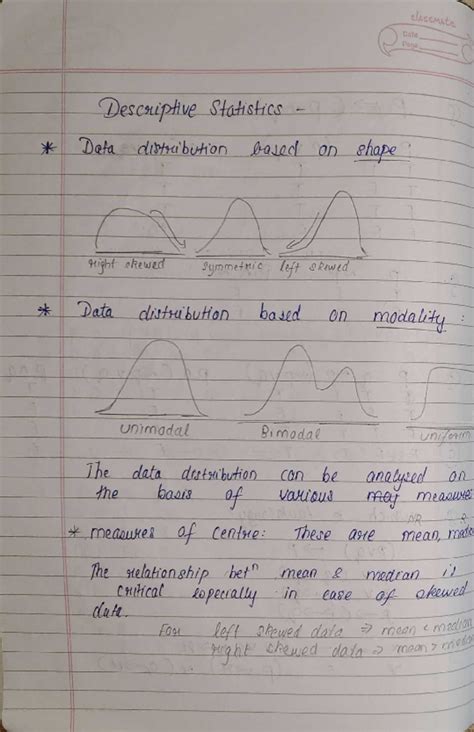 classmate
Date
Page
Descriptive Statistics -
* Data distribution based on shape:
right skewed symmetric left skewed
* Data distribution based on modality:
unimodal Bimodal uniform
The data distribution can be analysed on
the basis of various measures
* measures of centre: These are mean, median
The relationship betn mean & median is
critical especially in case of skewed
data.
For left skewed data ⇒ mean < median
right skewed data ⇒ mean > median